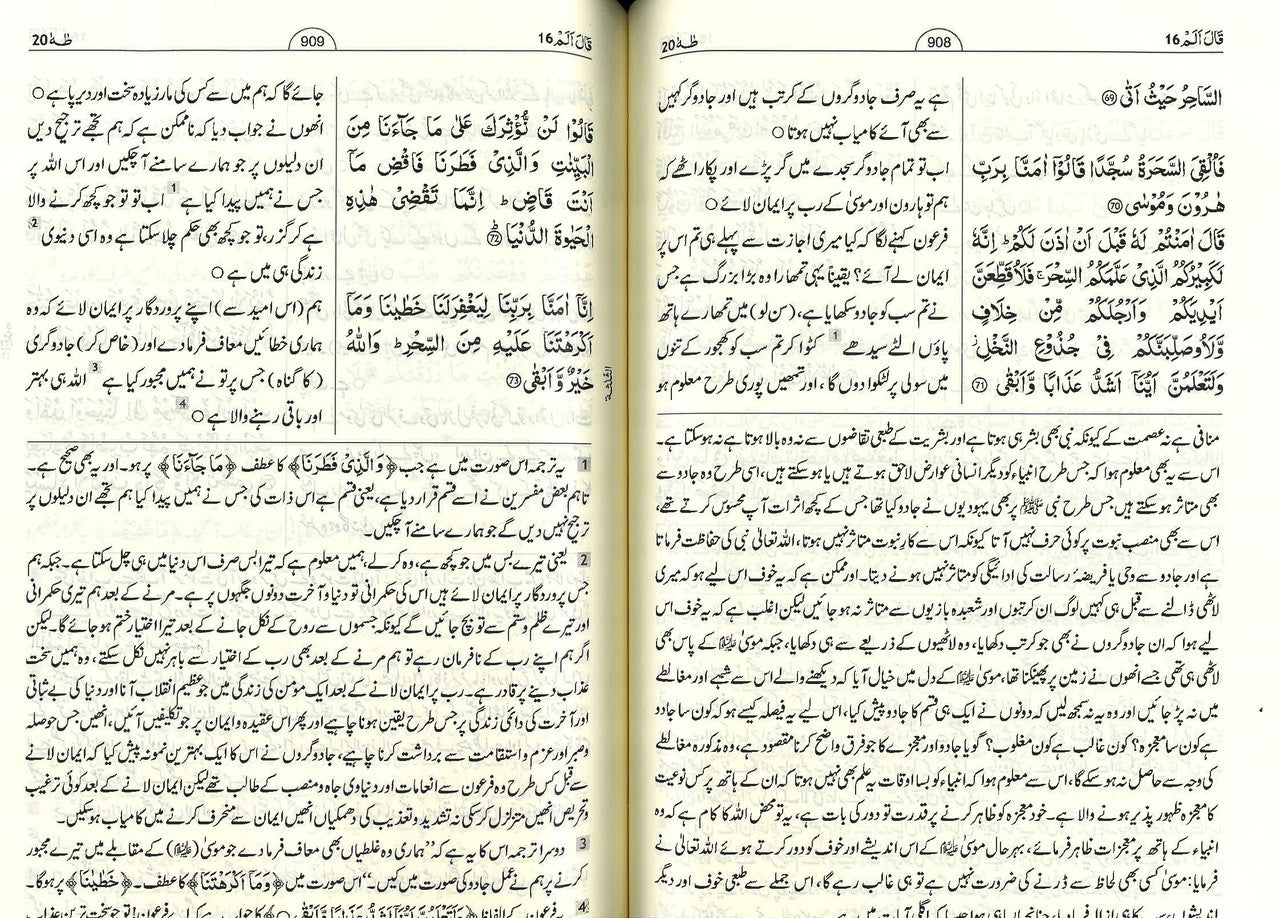 قَالَ اَلَمْ 16
908
طٰهٰ 20
السَّاحِرُ حَيْثُ اَتٰى ۝69
فَاُلْقِيَ السَّحَرَةُ سُجَّدًا قَالُوْٓا اٰمَنَّا بِرَبِّ
هٰرُوْنَ وَمُوْسٰى ۝70
قَالَ اٰمَنْتُمْ لَهٗ قَبْلَ اَنْ اٰذَنَ لَكُمْ ۭ اِنَّهٗ
لَكَبِيْرُكُمُ الَّذِيْ عَلَّمَكُمُ السِّحْرَ ۚ فَلَاُقَطِّعَنَّ
اَيْدِيَكُمْ وَاَرْجُلَكُمْ مِّنْ خِلَافٍ
وَّلَاُوصَلِّبَنَّكُمْ فِيْ جُذُوْعِ النَّخْلِ ۡ
وَلَتَعْلَمُنَّ اَيُّنَآ اَشَدُّ عَذَابًا وَّاَبْقٰى ۝71
ہے یہ صرف جادوگروں کے کرتب ہیں اور جادوگر کہیں
سے بھی آئے کامیاب نہیں ہوتا ○
اب تو تمام جادوگر سجدے میں گر پڑے اور پکار اٹھے کہ
ہم تو ہارون اور موسیٰ کے رب پر ایمان لائے ○
فرعون کہنے لگا کہ کیا میری اجازت سے پہلے ہی تم اس پر
ایمان لے آئے؟ یقینا یہی تمھارا وہ بڑا بزرگ ہے جس
نے تم سب کو جادو سکھایا ہے، (سن لو) میں تمھارے ہاتھ
پاؤں الٹے سیدھے 1 کٹوا کر تم سب کو کھجور کے تنوں
میں سولی پر لٹکوا دوں گا، اور تمھیں پوری طرح معلوم ہو
منافی ہے نہ عصمت کے کیونکہ نبی بھی بشر ہی ہوتا ہے اور بشریت کے طبعی تقاضوں سے نہ وہ بالا ہوتا ہے نہ ہو سکتا ہے۔
اس سے یہ بھی معلوم ہوا کہ جس طرح انبیاء کو دیگر انسانی عوارض لاحق ہوتے ہیں یا ہو سکتے ہیں، اسی طرح وہ جادو سے
بھی متاثر ہو سکتے ہیں جس طرح نبی ﷺ پر بھی یہودیوں نے جادو کیا تھا جس کے کچھ اثرات آپ محسوس کرتے تھے،
اس سے بھی منصب نبوت پر کوئی حرف نہیں آتا کیونکہ اس سے کار نبوت متاثر نہیں ہوتا، اللہ تعالیٰ نبی کی حفاظت فرماتا
ہے اور جادو سے وحی یا فریضۂ رسالت کی ادائیگی کو متاثر نہیں ہونے دیتا۔ اور ممکن ہے کہ یہ خوف اس لیے ہو کہ میری
لاٹھی ڈالنے سے قبل ہی کہیں لوگ ان کرتبوں اور شعبدہ بازیوں سے متاثر نہ ہو جائیں لیکن اغلب ہے کہ یہ خوف اس
لیے ہوا کہ ان جادوگروں نے بھی جو کرتب دکھایا، وہ لاٹھیوں کے ذریعے سے ہی دکھایا، جبکہ موسیٰ علیہ السلام کے پاس بھی
لاٹھی ہی تھی جسے انھوں نے زمین پر پھینکنا تھا، موسیٰ علیہ السلام کے دل میں خیال آیا کہ دیکھنے والے اس سے شبہے اور مغالطے
میں نہ پڑ جائیں اور وہ یہ نہ سمجھ لیں کہ دونوں نے ایک ہی قسم کا جادو پیش کیا، اس لیے یہ فیصلہ کیسے ہو کہ کون سا جادو
ہے کون سا معجزہ؟ کون غالب ہے کون مغلوب؟ گویا جادو اور معجزے کا جو فرق واضح کرنا مقصود ہے، وہ مذکورہ مغالطے
کی وجہ سے حاصل نہ ہو سکے گا، اس سے معلوم ہوا کہ انبیاء کو بسا اوقات یہ علم بھی نہیں ہوتا کہ ان کے ہاتھ پر کس نوعیت
کا معجزہ ظہور پذیر ہونے والا ہے۔ خود معجزہ کو ظاہر کرنے پر قدرت تو دور کی بات ہے، یہ تو محض اللہ کا کام ہے کہ وہ
انبیاء کے ہاتھ پر معجزات ظاہر فرمائے، بہر حال موسیٰ علیہ السلام کے اس اندیشے اور خوف کو دور کرتے ہوئے اللہ تعالیٰ نے
فرمایا: موسیٰ کسی بھی لحاظ سے ڈرنے کی ضرورت نہیں ہے تو ہی غالب رہے گا، اس جملے سے طبعی خوف اور دیگر
قَالَ اَلَمْ 16
909
طٰهٰ 20
قَالُوْا لَنْ نُّؤْثِرَكَ عَلٰى مَا جَاۗءَنَا مِنَ
الْبَيِّنٰتِ وَالَّذِيْ فَطَرَنَا فَاقْضِ مَآ
اَنْتَ قَاضٍ ۭ اِنَّمَا تَقْضِيْ هٰذِهِ
الْحَيٰوةَ الدُّنْيَا ۝72
اِنَّآ اٰمَنَّا بِرَبِّنَا لِيَغْفِرَ لَنَا خَطٰيٰنَا وَمَآ
اَكْرَهْتَنَا عَلَيْهِ مِنَ السِّحْرِ ۭ وَاللّٰهُ
خَيْرٌ وَّاَبْقٰى ۝73
جائے گا کہ ہم میں سے کس کی مار زیادہ سخت اور دیرپا ہے ○
انھوں نے جواب دیا کہ ناممکن ہے کہ ہم تجھے ترجیح دیں
ان دلیلوں پر جو ہمارے سامنے آچکیں اور اس اللہ پر
جس نے ہمیں پیدا کیا ہے 1 اب تو تو جو کچھ کرنے والا
ہے کر گزر، تو جو کچھ بھی حکم چلا سکتا ہے وہ اسی دنیوی 2
زندگی ہی میں ہے ○
ہم (اس امید سے) اپنے پروردگار پر ایمان لائے کہ وہ
ہماری خطائیں معاف فرما دے اور (خاص کر) جادوگری
(کا گناہ) جس پر تو نے ہمیں مجبور کیا ہے 3 اللہ ہی بہتر
اور باقی رہنے والا ہے 4 ○
1 یہ ترجمہ اس صورت میں ہے جب ﴿وَالَّذِيْ فَطَرَنَا﴾ کا عطف ﴿مَا جَاۗءَنَا﴾ پر ہو۔ اور یہ بھی صحیح ہے۔
تاہم بعض مفسرین نے اسے قسم قرار دیا ہے، یعنی قسم ہے اس ذات کی جس نے ہمیں پیدا کیا ہم تجھے ان دلیلوں پر
ترجیح نہیں دیں گے جو ہمارے سامنے آچکیں۔
2 یعنی تیرے بس میں جو کچھ ہے، وہ کر لے، ہمیں معلوم ہے کہ تیرا بس صرف اس دنیا میں ہی چل سکتا ہے۔ جبکہ ہم
جس پروردگار پر ایمان لائے ہیں اس کی حکمرانی تو دنیا و آخرت دونوں جگہوں پر ہے۔ مرنے کے بعد ہم تیری حکمرانی
اور تیرے ظلم و ستم سے تو بچ جائیں گے کیونکہ جسموں سے روح کے نکل جانے کے بعد تیرا اختیار ختم ہو جائے گا۔ لیکن
اگر ہم اپنے رب کے نافرمان رہے تو ہم مرنے کے بعد بھی رب کے اختیار سے باہر نہیں نکل سکتے، وہ ہمیں سخت
عذاب دینے پر قادر ہے۔ رب پر ایمان لانے کے بعد ایک مومن کی زندگی میں جو عظیم انقلاب آنا اور دنیا کی بے ثباتی
اور آخرت کی دائمی زندگی پر جس طرح یقین ہونا چاہیے اور پھر اس عقیدہ و ایمان پر جو تکلیفیں آئیں، انھیں جس حوصلہ
و صبر اور عزم و استقامت سے برداشت کرنا چاہیے، جادوگروں نے اس کا ایک بہترین نمونہ پیش کیا کہ ایمان لانے
سے قبل کس طرح وہ فرعون سے انعامات اور دنیاوی جاہ و منصب کے طالب تھے لیکن ایمان لانے کے بعد کوئی ترغیب
و تحریص انھیں متزلزل کر سکی نہ تشدید و تعذیب کی دھمکیاں انھیں ایمان سے منحرف کرنے میں کامیاب ہو سکیں۔
3 دوسرا ترجمہ اس کا یہ ہے کہ "ہماری وہ غلطیاں بھی معاف فرما دے جو موسیٰ (علیہ السلام) کے مقابلے میں تیرے مجبور
کرنے پر ہم نے عمل جادو کی صورت میں کیں۔" اس صورت میں ﴿وَمَآ اَكْرَهْتَنَا﴾ کا عطف۔ ﴿خَطٰيٰنَا﴾ پر ہوگا۔
4